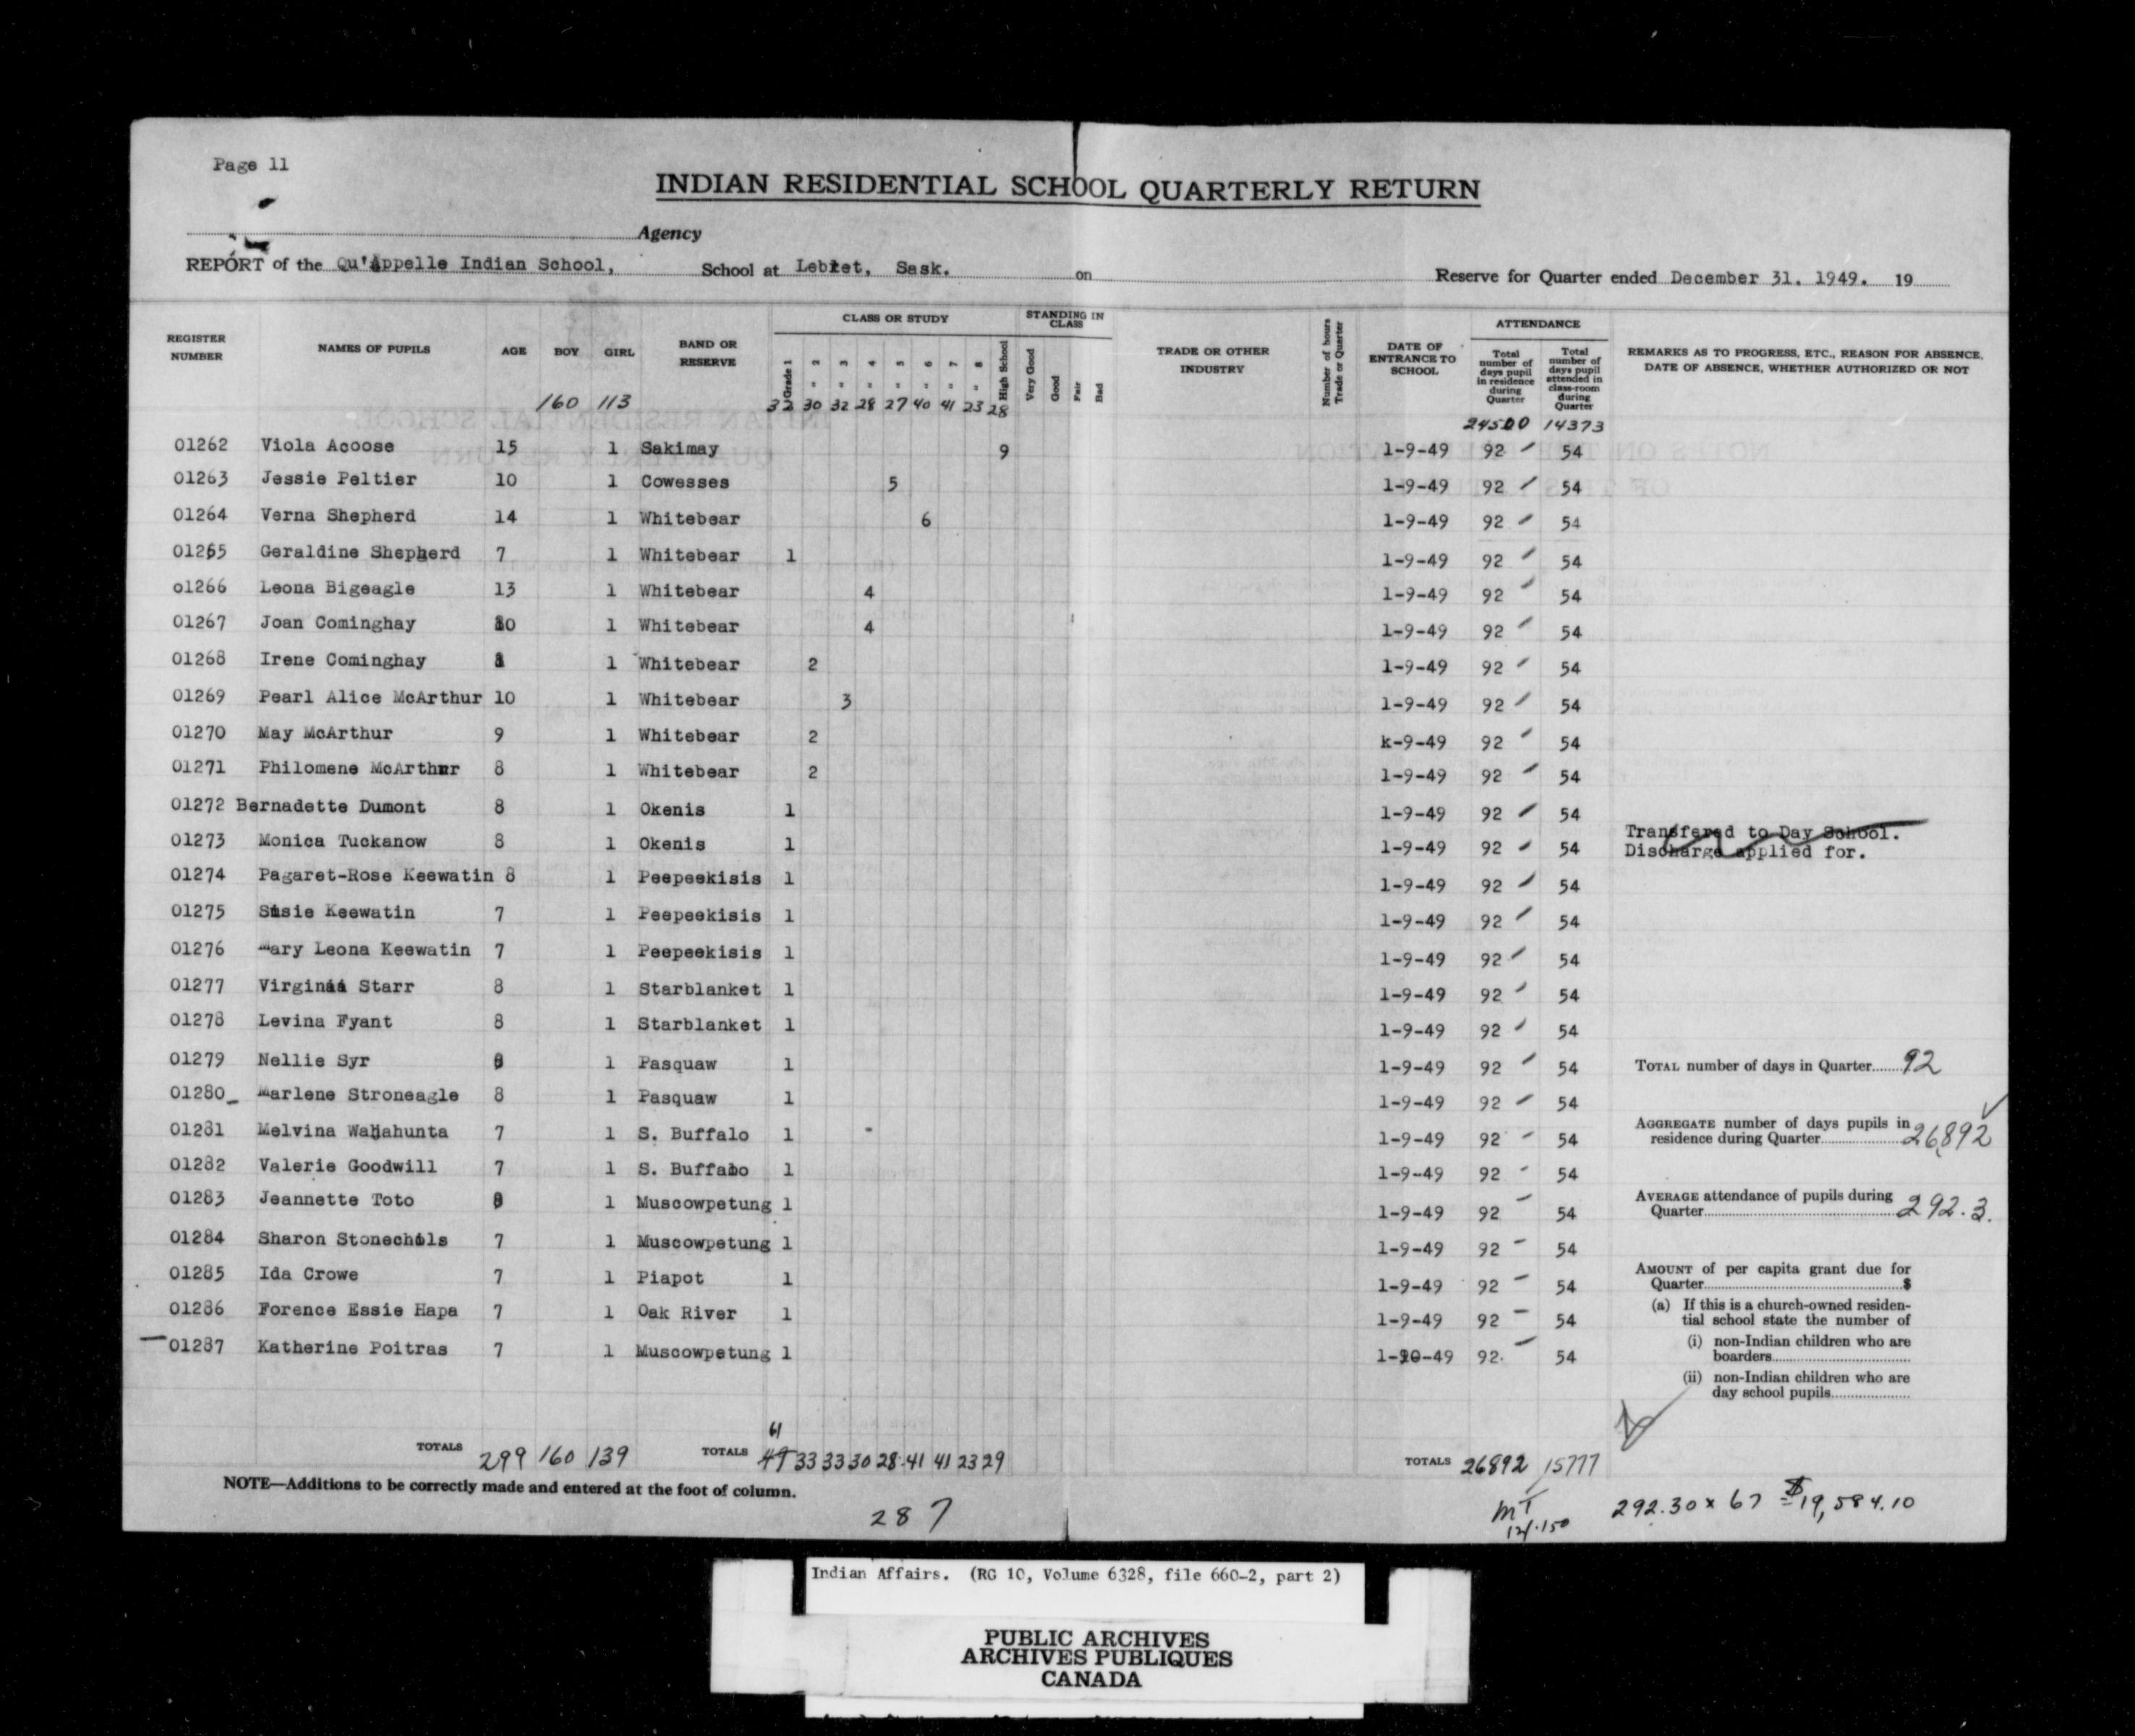 Page 11
INDIAN RESIDENTIAL SCHOOL QUARTERLY RETURN
Agency
REPORT of the Qu'Appelle Indian School, School at Lebret, Sask. on Reserve for Quarter ended December 31. 1949. 19
REGISTER NUMBER NAMES OF PUPILS AGE BOY GIRL BAND OR RESERVE CLASS OR STUDY Grade 1 " 2 " 3 " 4 " 5 " 6 " 7 " 8 High School STANDING IN CLASS Very Good Good Fair Bad TRADE OR OTHER INDUSTRY Number of hours Trade or Quarter DATE OF ENTRANCE TO SCHOOL ATTENDANCE Total number of days pupil in residence during Quarter Total number of days pupil attended in class-room during Quarter REMARKS AS TO PROGRESS, ETC., REASON FOR ABSENCE, DATE OF ABSENCE, WHETHER AUTHORIZED OR NOT
160 113 32 30 32 28 27 40 41 23 28 24500 14373
01262 Viola Acoose 15 1 Sakimay 9 1-9-49 92 54
01263 Jessie Peltier 10 1 Cowesses 5 1-9-49 92 54
01264 Verna Shepherd 14 1 Whitebear 6 1-9-49 92 54
01265 Geraldine Shepherd 7 1 Whitebear 1 1-9-49 92 54
o1266 Leona Bigeagle 13 1 Whitebear 4 1-9-49 92 54
01267 Joan Cominghay 10 1 Whitebear 4 1-9-49 92 54
01268 Irene Cominghay 1 Whitebear 2 1-9-49 92 54
01269 Pearl Alice McArthur 10 1 Whitebear 3 1-9-49 92 54
01270 May McArthur 9 1 Whitebear 2 k-9-49 92 54
01271 Philomene McArthur 8 1 Whitebear 2 1-9-49 92 54
01272 Bernadette Dumont 8 1 Okenis 1 1-9-49 92 54
01273 Monica Tuckanow 8 1 Okenis 1 1-9-49 92 54 Transfered to Day School.
Discharge applied for.
01274 Pagaret-Rose Keewatin 8 1 Peepeekisis 1 1-9-49 92 54
01275 Susie Keewatin 7 1 Peepeekisis 1 1-9-49 92 54
01276 Mary Leona Keewatin 7 1 Peepeekisis 1 1-9-49 92 54
01277 Virginia Starr 8 1 Starblanket 1 1-9-49 92 54
01278 Levina Fyant 8 1 Starblanket 1 1-9-49 92 54
01279 Nellie Syr 8 1 Pasquaw 1 1-9-49 92 54 TOTAL number of days in Quarter 92
01280 Marlene Stroneagle 8 1 Pasquaw 1 1-9-49 92 54
01281 Melvina Wahahunta 7 1 S. Buffalo 1 1-9-49 92 54 AGGREGATE number of days pupils in residence during Quarter 26,892
01282 Valerie Goodwill 7 1 S. Buffalo 1 1-9-49 92 54
01283 Jeannette Toto 8 1 Muscowpetung 1 1-9-49 92 54 AVERAGE attendance of pupils during Quarter 292.3.
01284 Sharon Stonechils 7 1 Muscowpetung 1 1-9-49 92 54
01285 Ida Crowe 7 1 Piapot 1 1-9-49 92 54 AMOUNT of per capita grant due for Quarter $
01286 Forence Essie Hapa 7 1 Oak River 1 1-9-49 92 54 (a) If this is a church-owned residential school state the number of
01287 Katherine Poitras 7 1 Muscowpetung 1 1-10-49 92. 54 (i) non-Indian children who are boarders
(ii) non-Indian children who are day school pupils
61
TOTALS 299 160 139 TOTALS 49 33 33 30 28 41 41 23 29 TOTALS 26892 15777
NOTE—Additions to be correctly made and entered at the foot of column.
287
MT
292.30 x 67 = $19,584.10
Indian Affairs. (RG 10, Volume 6328, file 660-2, part 2)
PUBLIC ARCHIVES
ARCHIVES PUBLIQUES
CANADA